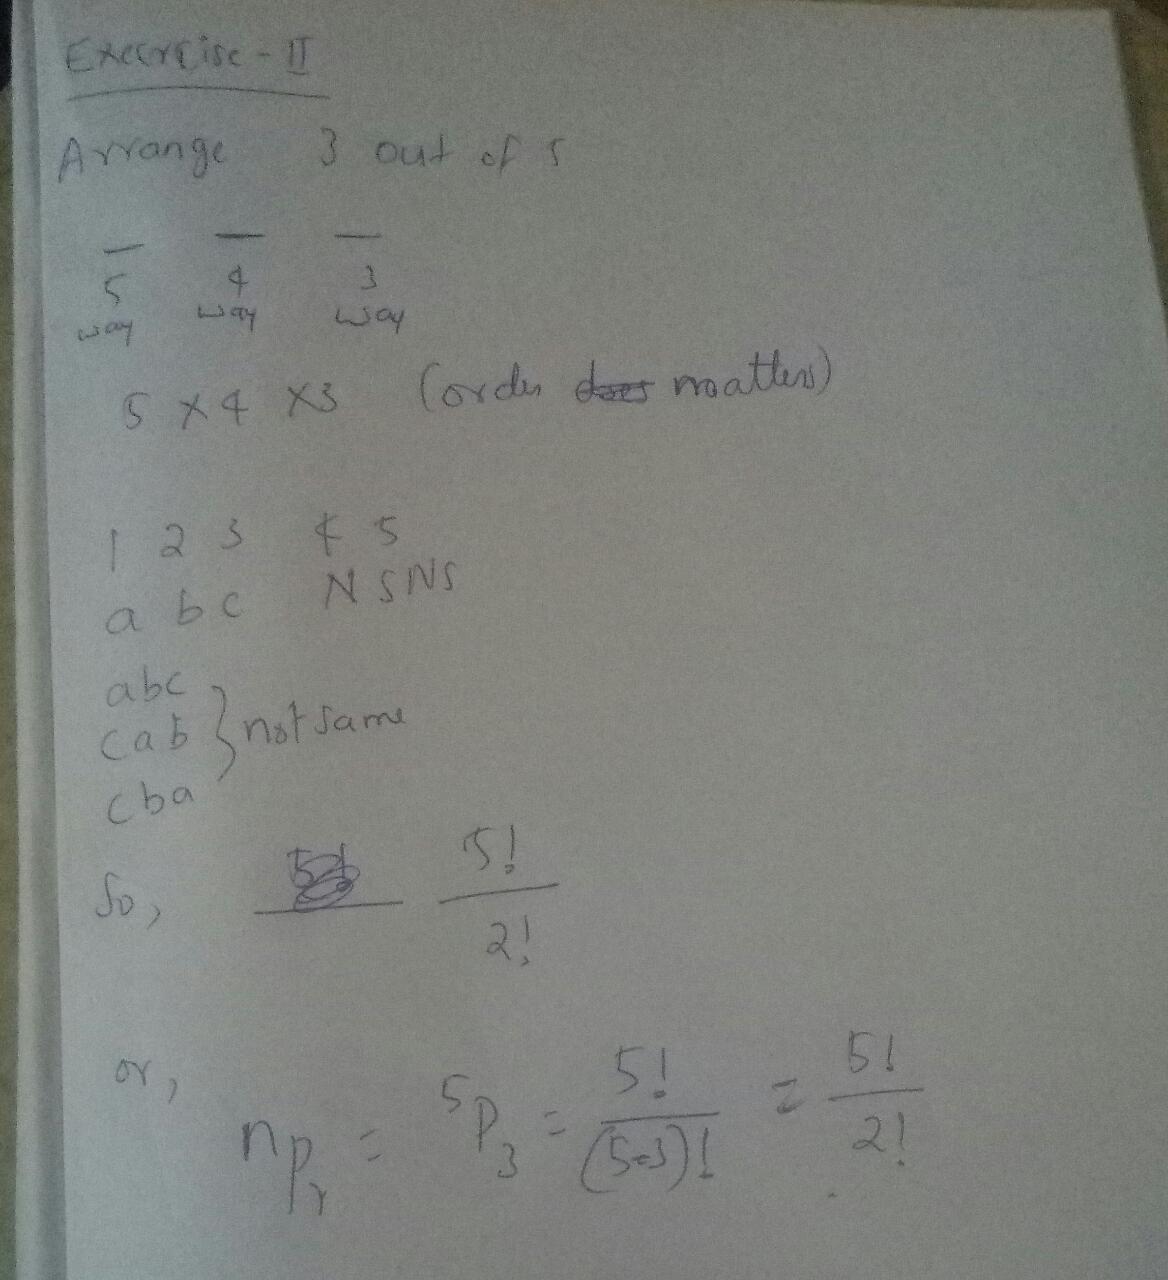 Exercise - II
Arrange 3 out of 5
5 4 3
way way way
5 x 4 x3 (order does matters)
1 2 3 4 5
a b c N S N S
abc
cab } not same
cba
So, 5!/2!
or, nPr = 5P3 = 5!/(5-3)! = 5!/2!